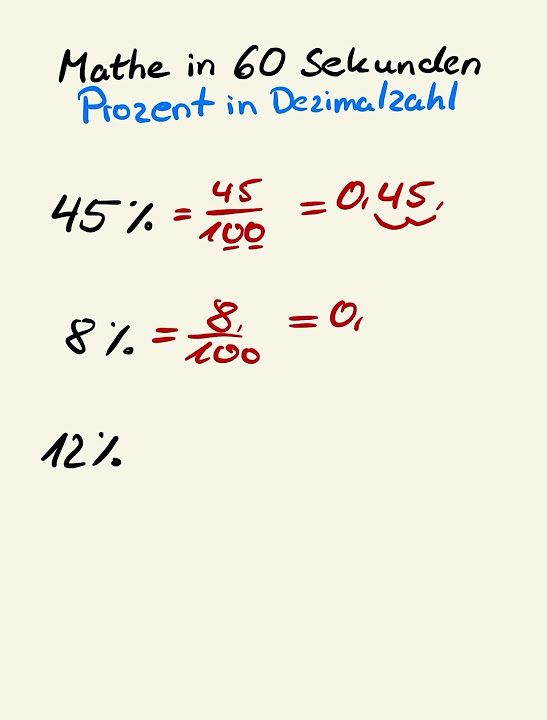 Mathe in 60 Sekunden
Prozent in Dezimalzahl
45% = 45/100 = 0,45,
8% = 8,/100 = 0,
12%